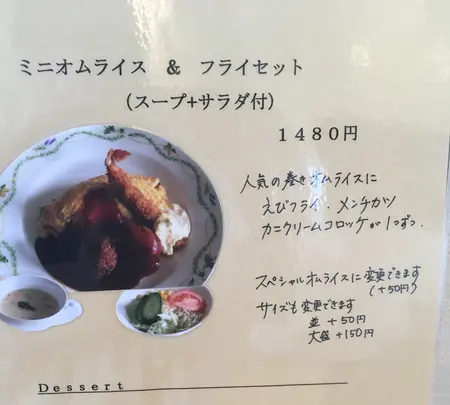 ミニオムライス & フライセット
(スープ+サラダ付)
1480円
人気の巻きオムライスに
えびフライ、メンチカツ
カニクリームコロッケが1つずつ.
スペシャルオムライスに変更できます
(+50円)
サイズも変更できます
並 +50円
大盛 +150円
Dessert